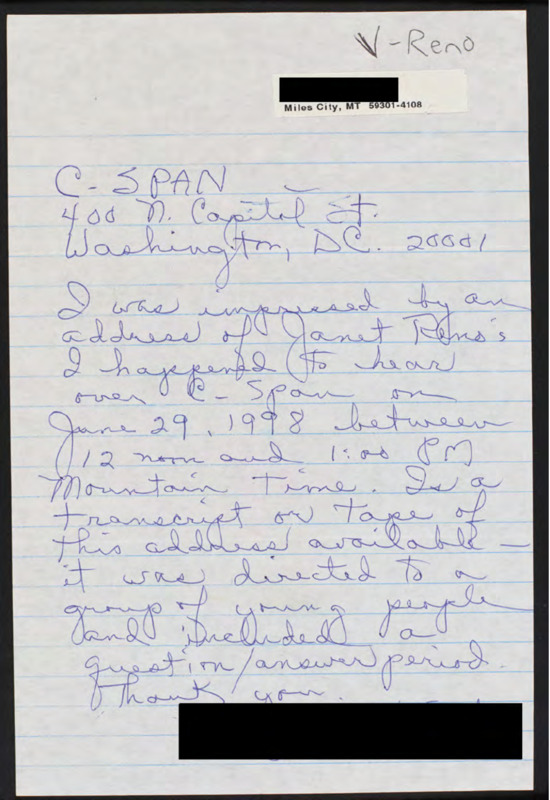 V-Reno
Miles City, MT 59301-4108
C-SPAN
400 N. Capitol St.
Washington, DC. 20001
I was impressed by an
address of Janet Reno's
I happened to hear
over C-Span on
June 29, 1998 between
12 noon and 1:00 PM
Mountain Time. Is a
transcript or tape of
this address available –
it was directed to a
group of young people
and included a
question/answer period.
Thank you.